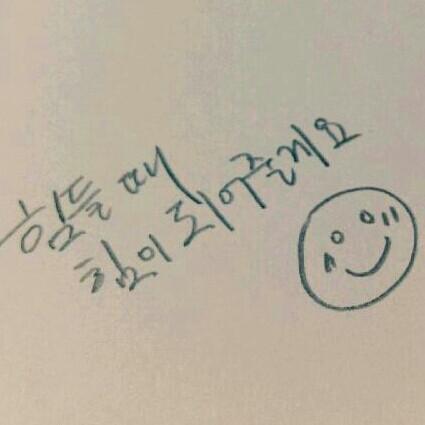 힘들 때
힘이 되어줄게요